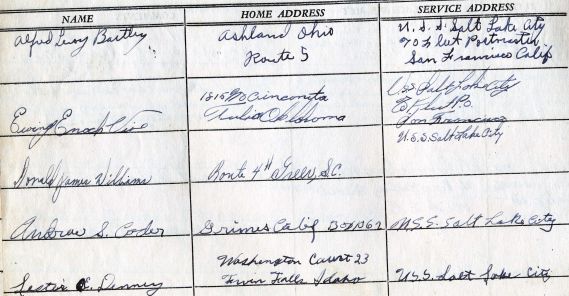 NAME HOME ADDRESS SERVICE ADDRESS
Alfred Leroy Bartley Ashland Ohio U.S.S. Salt Lake City
Route 5 % Fleet Postmaster
San Francisco Calif
1216
Ewing Enoch Tulsa Oklahoma
San Francisco
U.S.S. Salt Lake City
Donald James Williams Route 4 Greer, S.C.
Andrew S. Cooder Grimes Calif Box 162 U.S.S. Salt Lake City
Washington Court 23
Lester E. Denney Twin Falls Idaho U.S.S. Salt Lake City